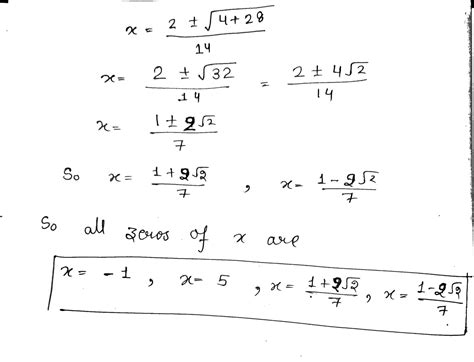 x = 2 ± √4+28 / 14
x = 2 ± √32 / 14 = 2 ± 4√2 / 14
x = 1 ± 2√2 / 7
So x = 1+2√2 / 7 , x = 1-2√2 / 7
So all zeros of x are
x = -1 , x = 5 , x = 1+2√2 / 7 , x = 1-2√2 / 7